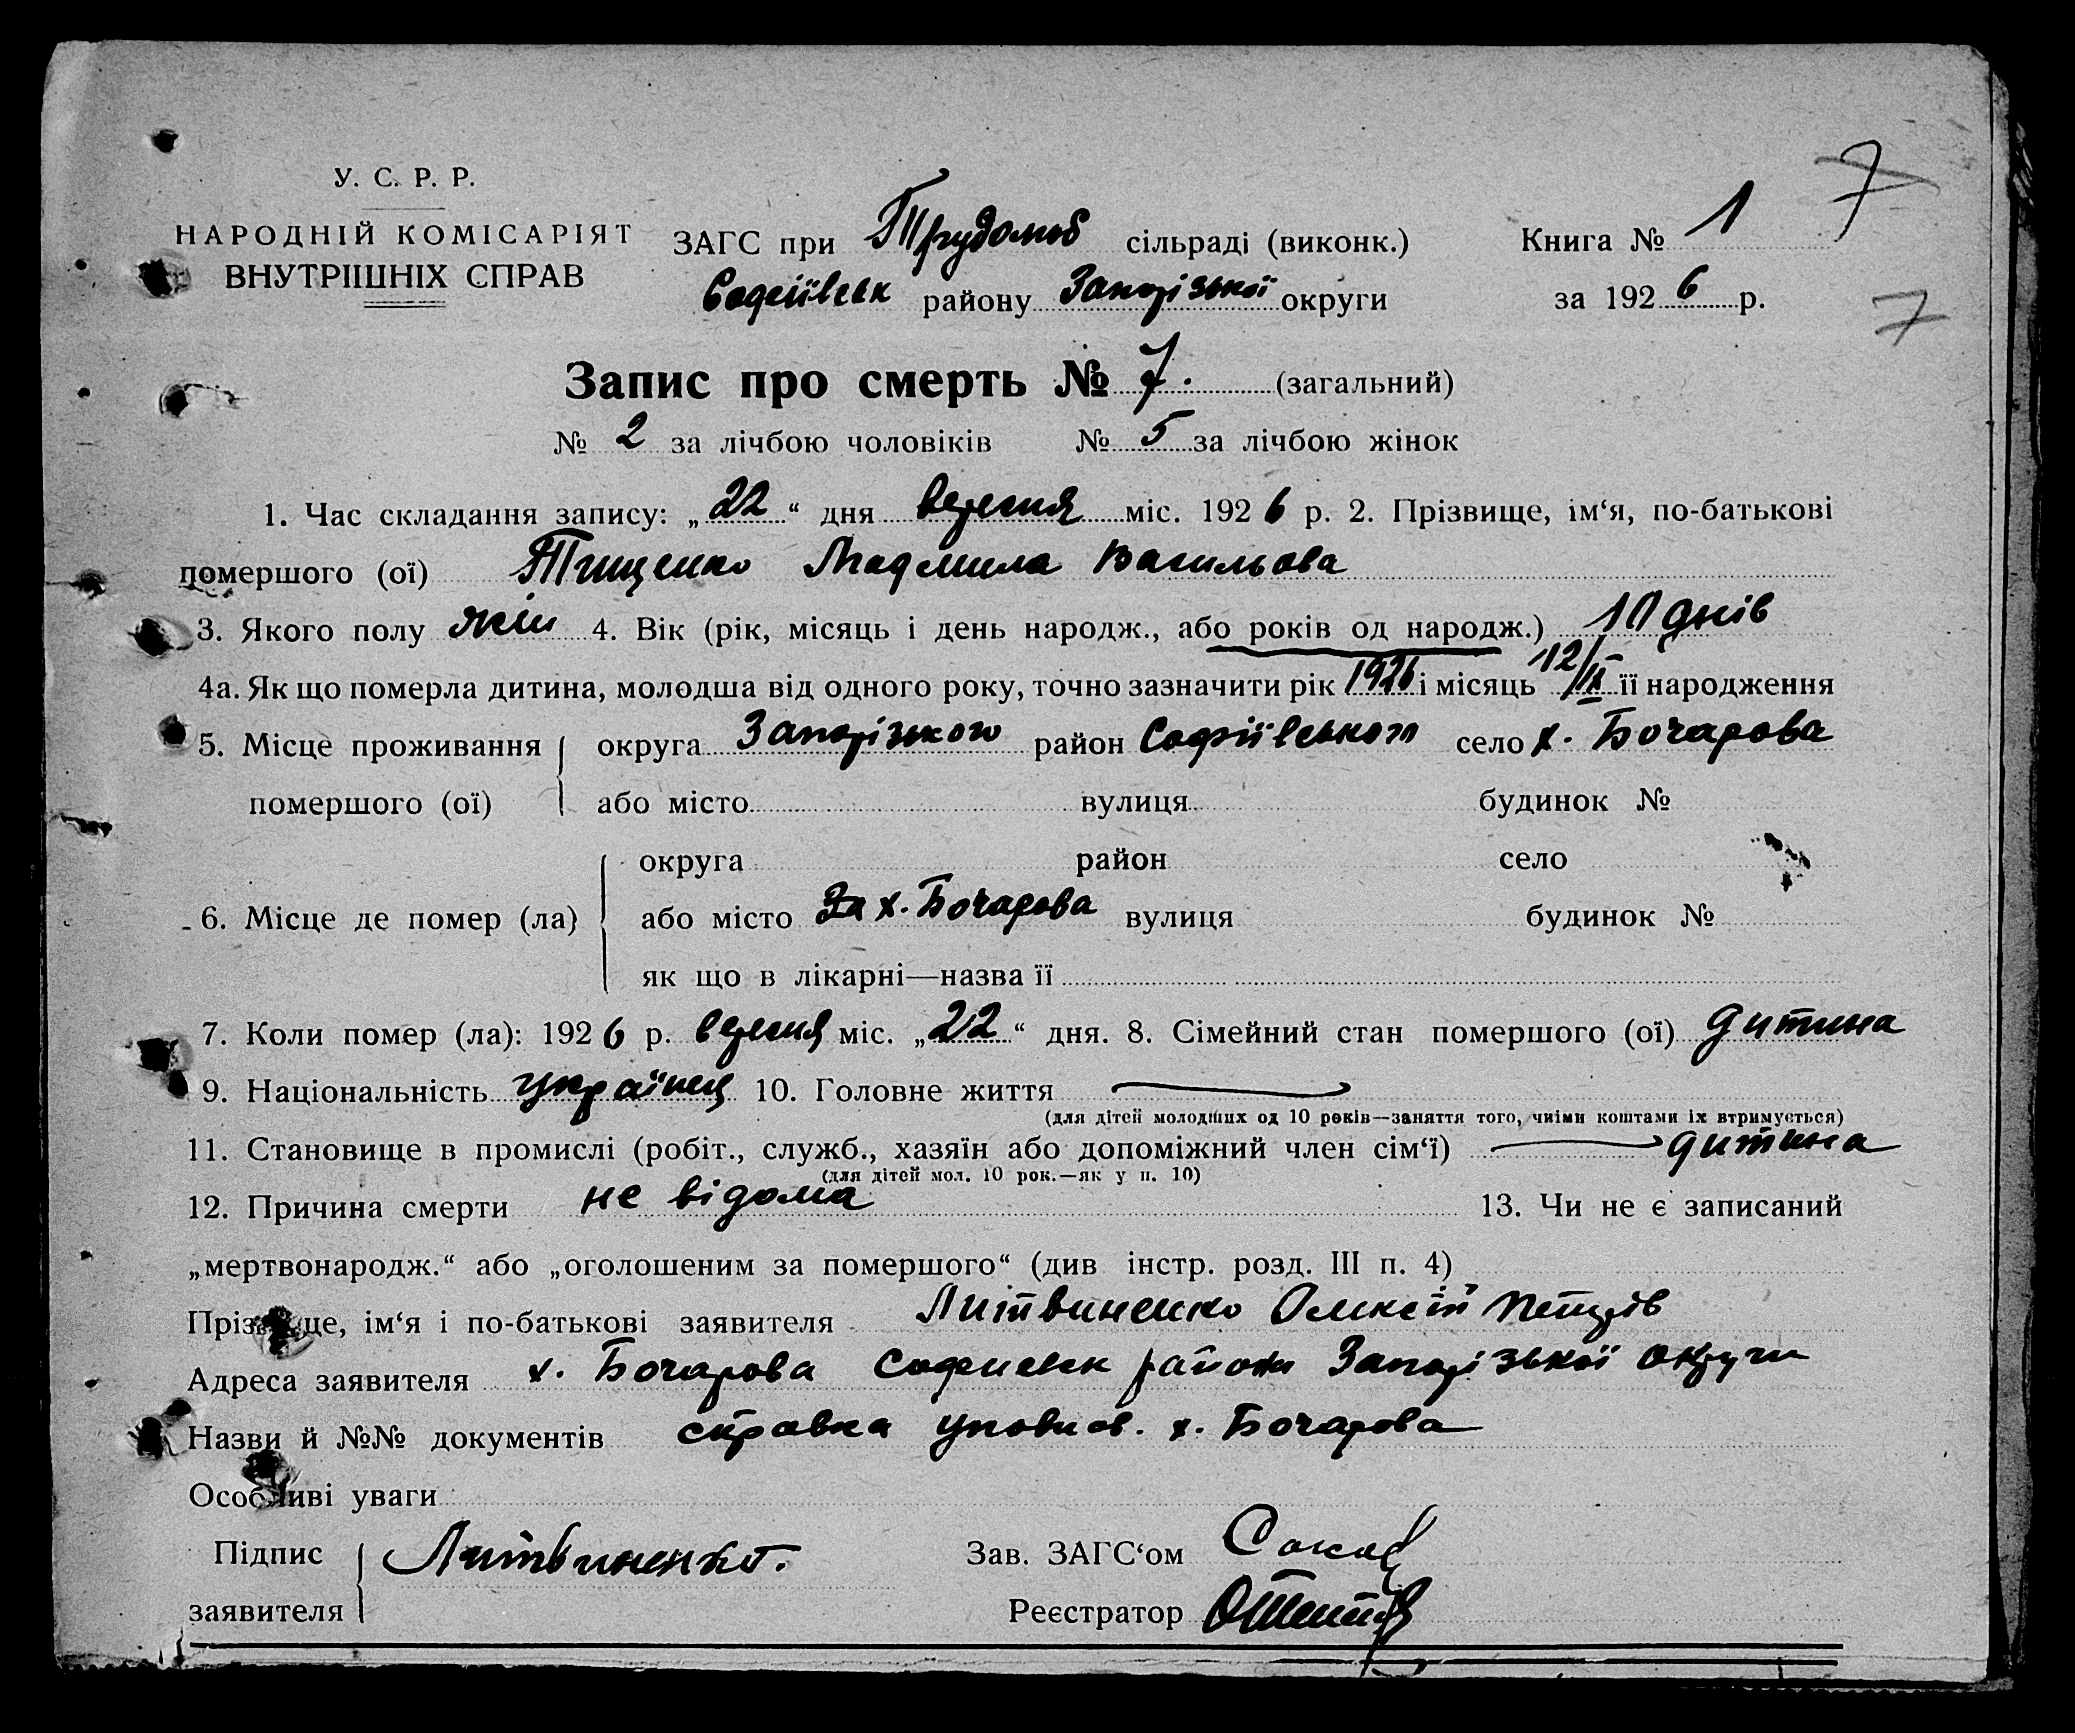 7
У. С. Р. Р.
НАРОДНІЙ КОМІСАРІЯТ
ВНУТРІШНІХ СПРАВ
ЗАГС при Трудолюб сільраді (виконк.)
Книга № 1
Софіївськ району Запорізької округи
за 1926 р.
7
Запис про смерть № 7. (загальний)
№ 2 за лічбою чоловіків № 5 за лічбою жінок
1. Час складання запису: „22“ дня вересня міс. 1926 р. 2. Прізвище, ім‘я, по-батькові
помершого (ої) Тищенко Людмила Васильова
3. Якого полу жін 4. Вік (рік, місяць і день народж., або років од народж.) 10 днів
4а. Як що померла дитина, молодша від одного року, точно зазначити рік 1926 і місяць 12/IX її народження
5. Місце проживання округа Запорізького район Софіївського село х. Бочарова
помершого (ої) або місто вулиця будинок №
округа район село
6. Місце де помер (ла) або місто На х. Бочарова вулиця будинок №
як що в лікарні—назва її
7. Коли помер (ла): 1926 р. вересня міс. „22“ дня. 8. Сімейний стан помершого (ої) дитина
9. Національність українец 10. Головне життя
(для дітей молодших од 10 років—заняття того, чиїми коштами їх втримується)
11. Становище в промислі (робіт., служб., хазяїн або допоміжний член сім‘ї) дитина
(для дітей мол. 10 рок.—як у п. 10)
12. Причина смерти не відома 13. Чи не є записаний
„мертвонародж.“ або „оголошеним за помершого“ (див інстр. розд. III п. 4)
Прізвище, ім‘я і по-батькові заявителя Литвиненко Олексій Петрів
Адреса заявителя х. Бочарова Софиевск району Запорізької округи
Назви й №№ документів справка уповнов. х. Бочарова
Особливі уваги
Підпис заявителя Литвиненко.
Зав. ЗАГС‘ом
Реєстратор